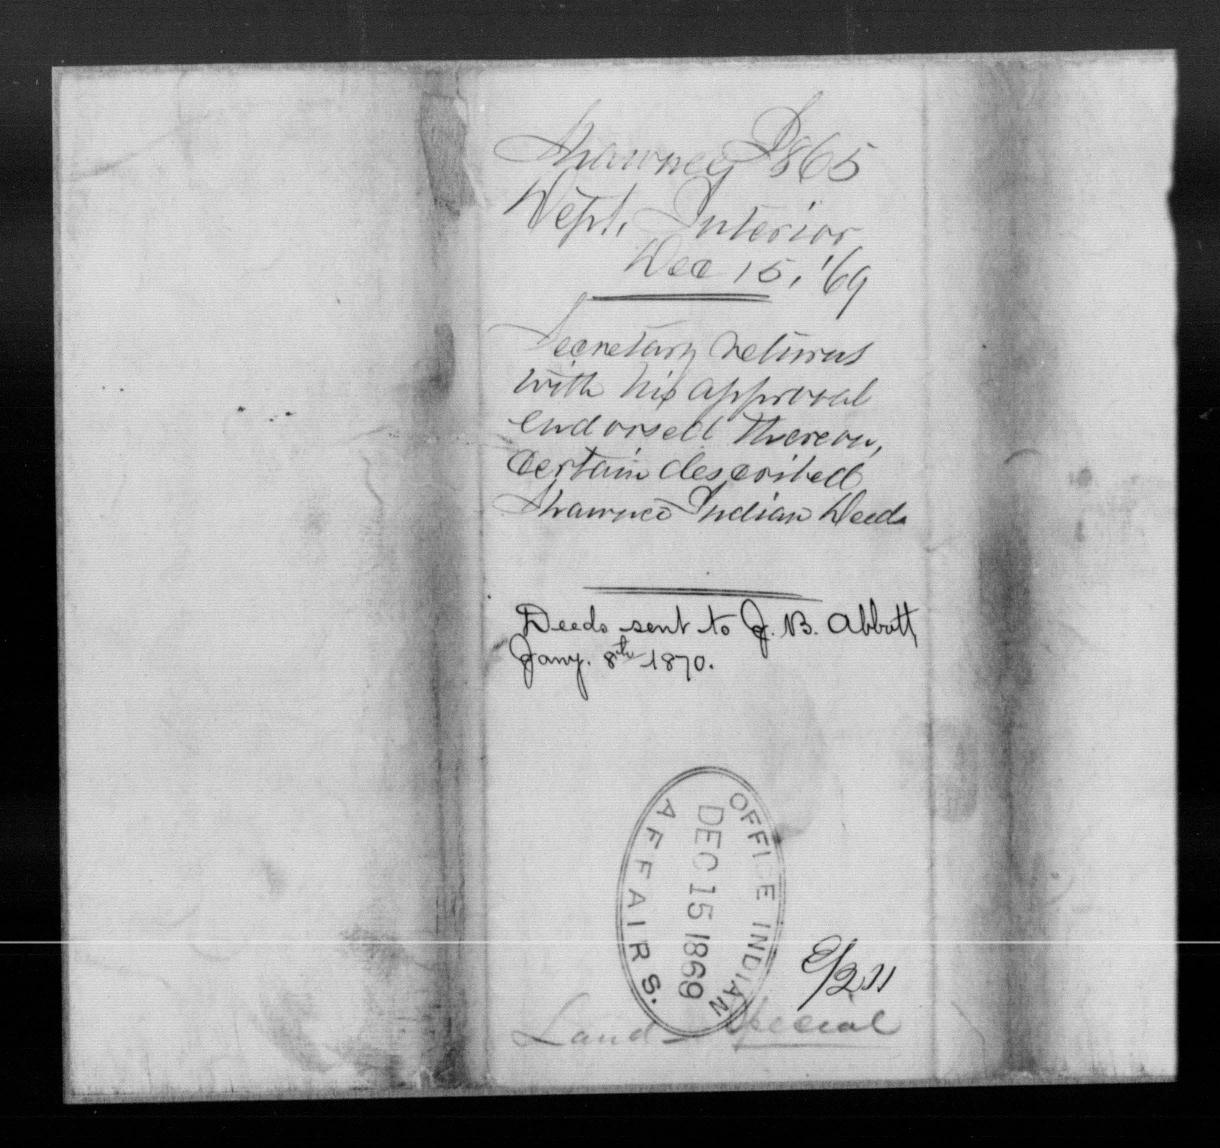 Shawnee I 865
Dept. Interior
Dec 15, '69
Secretary returns
with his approval
endorsed thereon,
certain described
Shawnee Indian Deeds
Deeds sent to J. B. Abbott,
Jany. 8th 1870.
OFFICE INDIAN AFFAIRS.
DEC 15 1869
Land Special